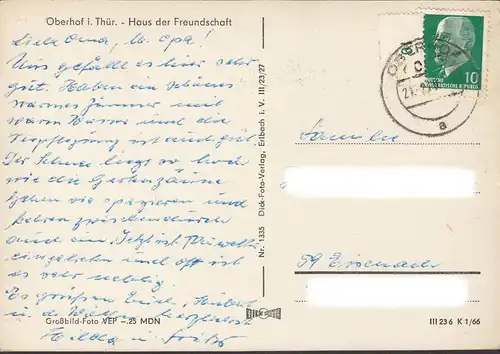 Oberhof i. Thür. - Haus der Freundschaft
Liebe Oma, lb. Opa!
Uns gefällt es hier sehr
gut. Haben ein schönes
warmes Zimmer mit
warm Wasser und die
Verpflegung ist auch gut.
Der Schnee liegt so hoch
wie die Gartenzäune
Gehen viel spazieren und
kehren zwischendurch
auch ein. Jetzt ist
eingetreten und oft ist
es sehr neblig.
Es grüßen Euch,
u. die
Hilda u. Fritz
Großbild-Foto VEP -.25 MDN
Nr. 1335 Dick-Foto-Verlag, Erlbach i. V. III/23/27
DICK FOTO
OBERHOF
a
10
DEUTSCHE
DEMOKRATISCHE REPUBLIK
Familie
59 Eisenach
III 23 6 K 1/66